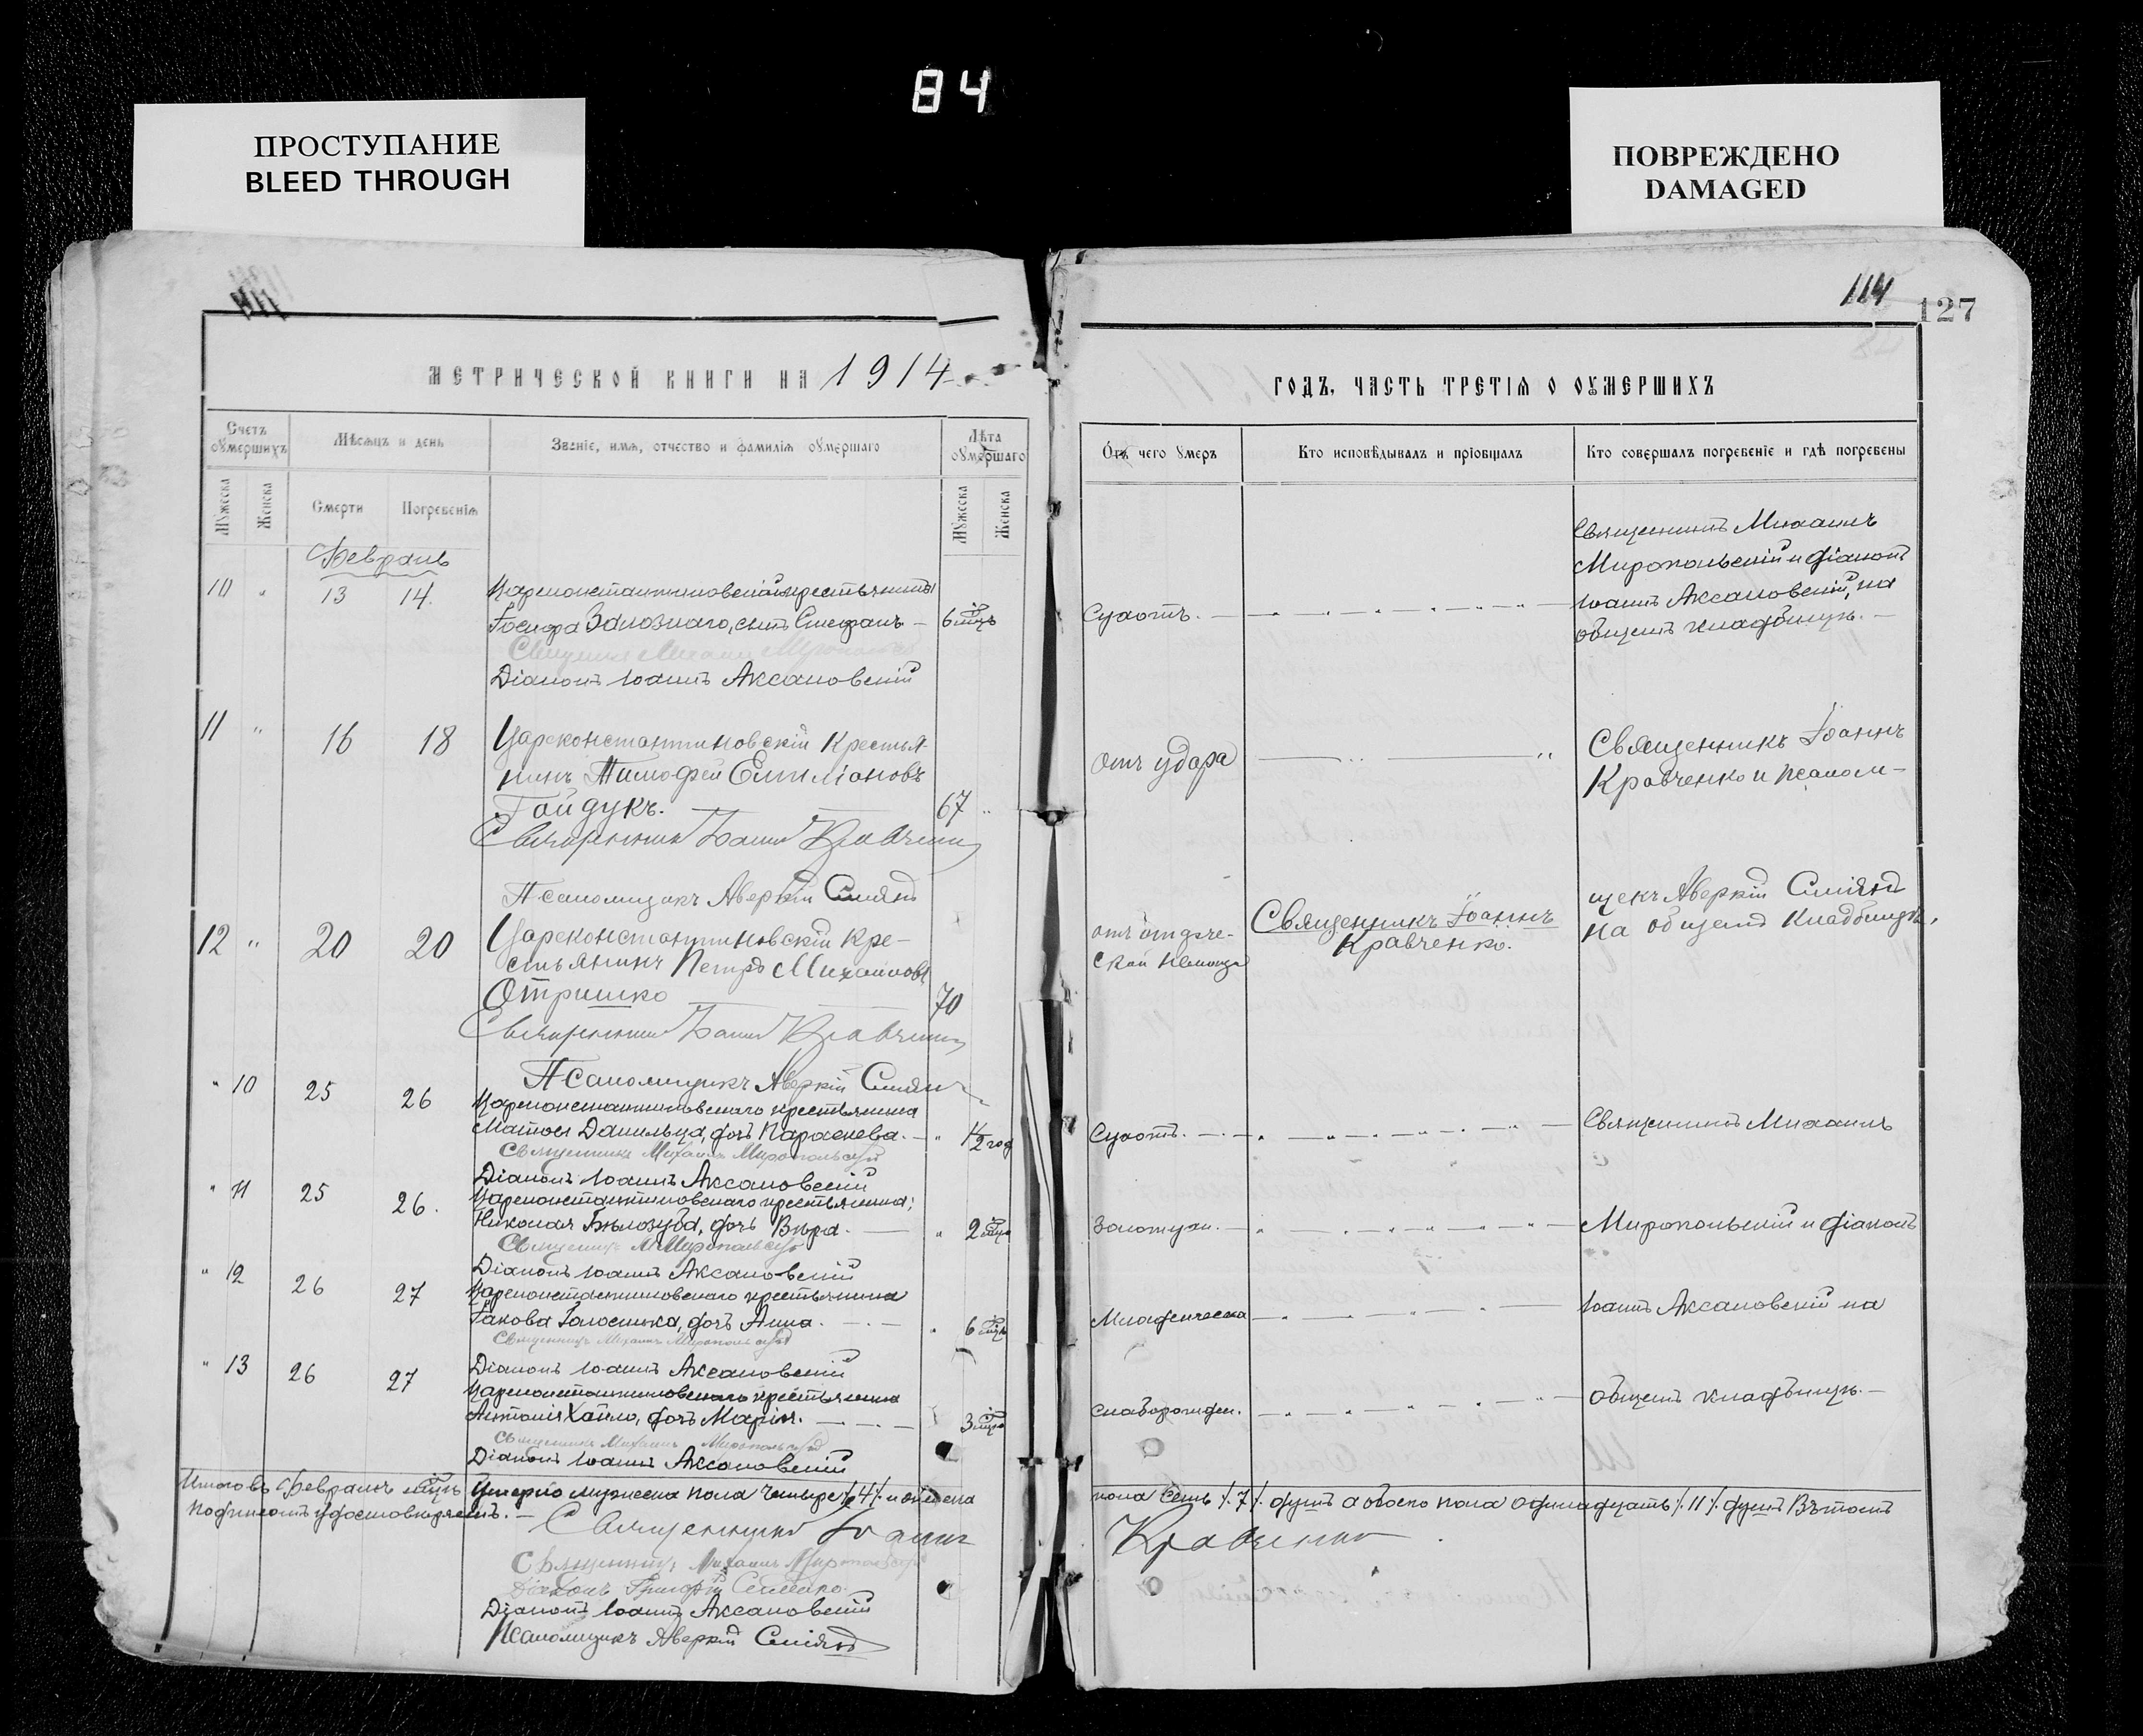 84
ПРОСТУПАНИЕ
BLEED THROUGH
ПОВРЕЖДЕНО
DAMAGED
МЕТРИЧЕСКОЙ КНИГИ НА 1914
Счетъ оумершихъ
Мѣсяцъ и день
Званіе, имя, отчество и фамилія оумершаго
Лѣта оумершаго
Мужеска
Женска
Смерти
Погребенія
Мужеска
Женска
Февраль
10 " 13 14. Цареконстантиновскій крестьянинъ
Іосифа Залознаго, сынъ Стефанъ — 6 мцъ
Священникъ Михаилъ Миропольскій
Діаконъ Іоаннъ Аксановскій
11 " 16 18 Цареконстантиновскій Крестья-
нинъ Тимофей Емиліановъ
Гайдукъ. 67 "
Священникъ Іоаннъ Кравченко
Псаломщикъ Аверкій
12 " 20 20 Цареконстантиновскій Кре-
стьянинъ Петръ Михайловъ
Отришко 70
Священникъ Іоаннъ Кравченко
Псаломщикъ Аверкій
" 10 25 26 Цареконстантиновскаго крестьянина
Матвея Данильца, дочь Параскева. — " 1½ год
Священникъ Михаилъ Миропольскій
Діаконъ Іоаннъ Аксановскій
" 11 25 26. Цареконстантиновскаго крестьянина
Николая Бѣлозуба, дочь Вѣра. — " 2 мца
Священникъ М Миропольскій
Діаконъ Іоаннъ Аксановскій
" 12 26 27 Цареконстантиновскаго крестьянина
Іакова дочь Анна. — " 6 мцъ
Священникъ Михаилъ Миропольскій
Діаконъ Іоаннъ Аксановскій
" 13 26 27 Цареконстантиновскаго крестьянина
Антонія Хайло, дочь Марія. — 3 мца
Священникъ Михаилъ Миропольскій
Діаконъ Іоаннъ Аксановскій
Итого въ Февралѣ мцѣ умерло мужеска пола четыре /4/ и женска
подписомъ удостовѣряемъ. —
Священникъ Іоаннъ
Священникъ Михаилъ Миропольскій
Діаконъ
Діаконъ Іоаннъ Аксановскій
Псаломщикъ Аверкій
114
127
ГОДЪ, ЧАСТЬ ТРЕТІЯ О ОУМЕРШИХЪ
Отъ чего умеръ
Кто исповѣдывалъ и пріобщалъ
Кто совершалъ погребеніе и гдѣ погребены
Священникъ Михаилъ
Миропольскій и діаконъ
Іоаннъ Аксановскій, на
общемъ кладбищѣ. —
Сухотъ.
Отъ удара
Священникъ Іоаннъ
Кравченко и псалом-
щикъ Аверкій
на общемъ кладбищѣ.
Священникъ Іоаннъ
Кравченко.
Сухотъ. — Священникъ Михаилъ
Золотухи. — Миропольскій и діаконъ
Младенческая — Іоаннъ Аксановскій на
Слаборожден. — общемъ кладбищѣ. —
пола семь /7/ душъ а обоего пола одинадцать /11/ душъ Въ томъ
Кравченко